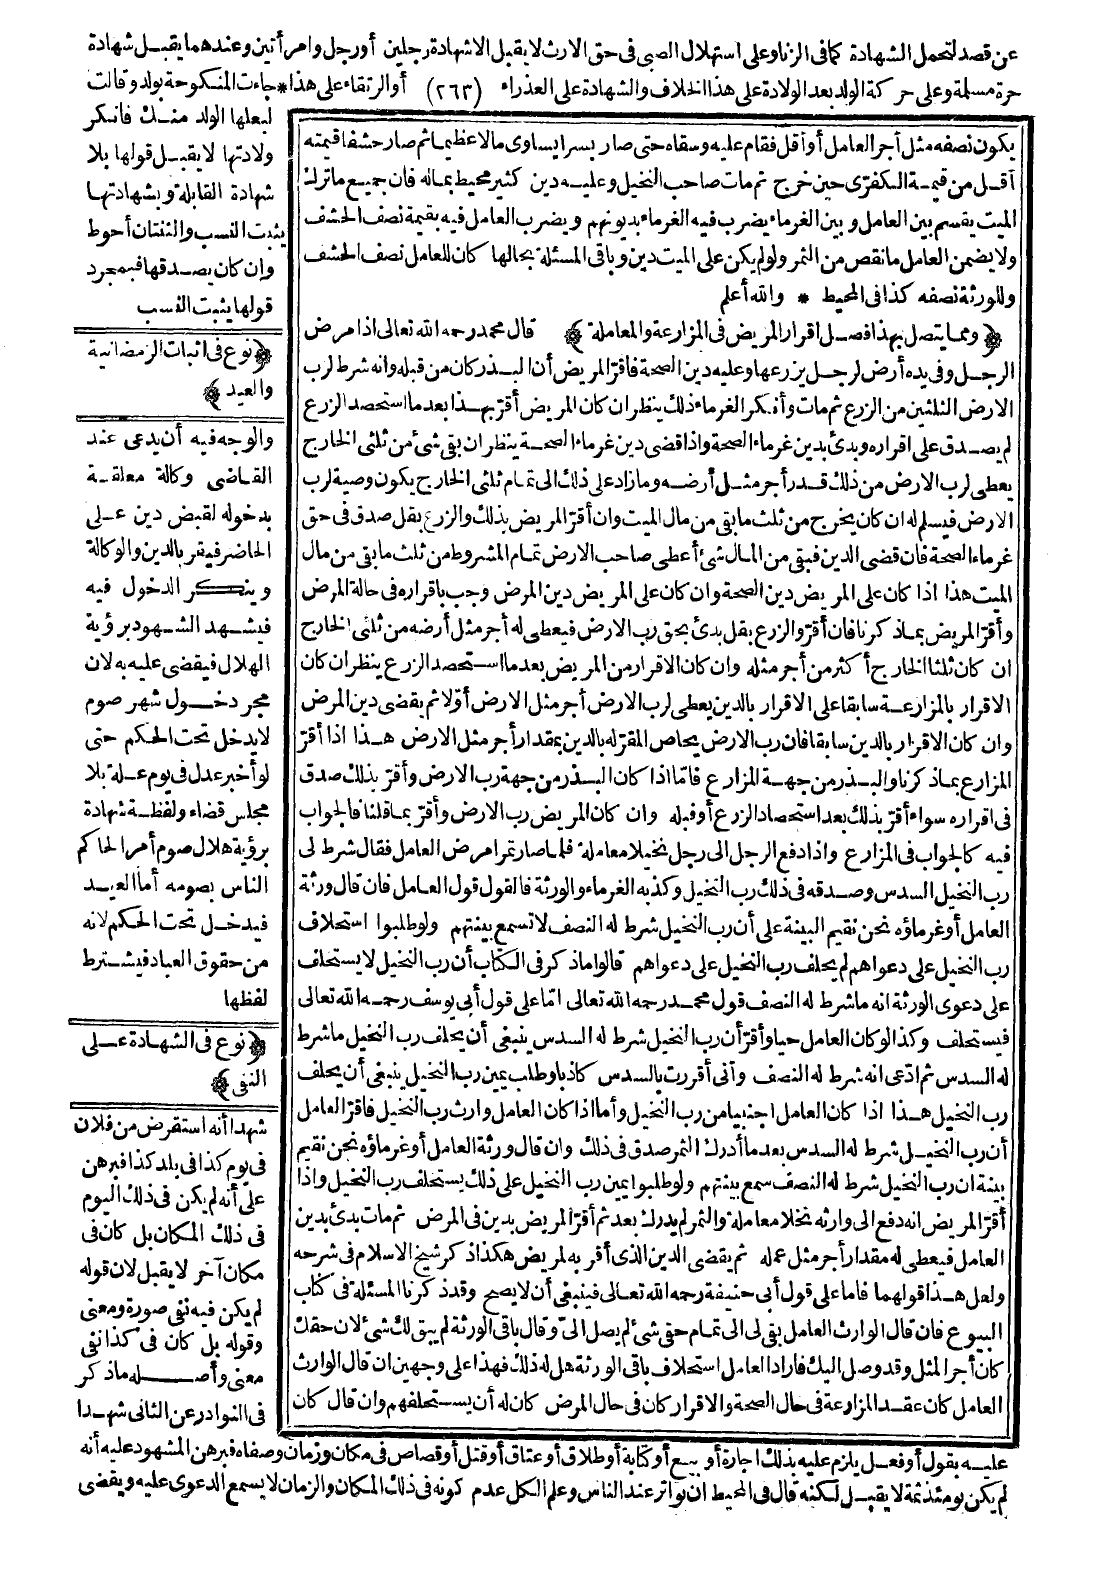 عن قصد لتحمل الشهادة كما فى الزنا وعلى استهلال الصبى فى حق الارث لا يقبل الا شهادة رجلين أو رجل وامرأتين وعندهما يقبل شهادة
حرة مسلمة وعلى حركة الولد بعد الولادة على هذا الخلاف والشهادة على العذراء (٢٦٣) أو الرتقاء على هذا * جاءت المنكوحة بولد وقالت
لبعلها الولد منك فأنكر
ولادتها لا يقبل قولها بلا
شهادة القابلة وبشهادتها
يثبت النسب والثنتان أحوط
وان كان يصدقها فبمجرد
قولها يثبت النسب
﴿نوع فى اثبات الرمضانية
والعيد﴾
والوجه فيه أن يدعى عند
القاضى وكالة معلقة
بدخوله لقبض دين على
الحاضر فيقر بالدين والوكالة
وينكر الدخول فيه
فيشهد الشهود برؤية
الهلال فيقضى عليه به لان
مجرد دخول شهر صوم
لا يدخل تحت الحكم حتى
لو أخبر عدل فى يوم علة بلا
مجلس قضاء ولفظة شهادة
برؤية هلال صوم أمر الحاكم
الناس بصومه أما العيد
فيدخل تحت الحكم لانه
من حقوق العباد فيشترط
لفظها
﴿نوع فى الشهادة على
النفى﴾
شهدا أنه استقرض من فلان
فى يوم كذا فى بلد كذا فبرهن
على أنه لم يكن فى ذلك اليوم
فى ذلك المكان بل كان فى
مكان آخر لا يقبل لان قوله
لم يكن فيه نفى صورة ومعنى
وقوله بل كان فى كذا نفى
معنى وأصله ما ذكر
فى النوادر عن الثانى شهدا
يكون نصفه مثل أجر العامل أو أقل فقام عليه وسقاه حتى صار بسرا يساوى مالا عظيما ثم صار حشفا قيمته
أقل من قيمة الكفرّى حين خرج ثم مات صاحب النخيل وعليه دين كثير محيط بماله فان جميع ما ترك
الميت يقسم بين العامل وبين الغرماء يضرب فيه الغرماء بديونهم ويضرب العامل فيه بقيمة نصف الحشف
ولا يضمن العامل ما نقص من الثمر ولو لم يكن على الميت دين وباقى المسئلة بحالها كان للعامل نصف الحشف
وللورثة نصفه كذا فى المحيط * والله أعلم
﴿ومما يتصل بهذا فصل اقرار المريض فى المزارعة والمعاملة﴾ قال محمد رحمه الله تعالى اذا مرض
الرجل وفى يده أرض لرجل يزرعها وعليه دين الصحة فاقرّ المريض أن البذر كان من قبله وانه شرط لرب
الارض الثلثين من الزرع ثم مات وأنكر الغرماء ذلك ينظر ان كان المريض أقرّ بهذا بعد ما استحصد الزرع
لم يصدق على اقراره وبدئ بدين غرماء الصحة واذا قضى دين غرماء الصحة ينظر ان بقى شئ من ثلثى الخارج
يعطى لرب الارض من ذلك قدر أجر مثل أرضه وما زاد على ذلك الى تمام ثلثى الخارج يكون وصية لرب
الارض فيسلم له ان كان يخرج من ثلث ما بقى من مال الميت وان أقرّ المريض بذلك والزرع بقل صدق فى حق
غرماء الصحة فان قضى الدين فبقى من المال شئ أعطى صاحب الارض تمام المشروط من ثلث ما بقى من مال
الميت هذا اذا كان على المريض دين الصحة وان كان على المريض دين المرض وجب باقراره فى حالة المرض
وأقرّ المريض بماذكرنا فان أقرّ والزرع بقل بدئ بحق رب الارض فيعطى له أجر مثل أرضه من ثلثى الخارج
ان كان ثلثا الخارج أكثر من أجر مثله وان كان الاقرار من المريض بعد ما استحصد الزرع ينظر ان كان
الاقرار بالمزارعة سابقا على الاقرار بالدين يعطى لرب الارض أجر مثل الارض أوّلا ثم يقضى دين المرض
وان كان الاقرار بالدين سابقا فان رب الارض يحاص المقرّ له بالدين بمقدار أجر مثل الارض هذا اذا أقرّ
المزارع بماذكرنا والبذر من جهة المزارع فامّا اذا كان البذر من جهة رب الارض وأقرّ بذلك صدق
فى اقراره سواء أقرّ بذلك بعد استحصاد الزرع أو قبله وان كان المريض رب الارض وأقرّ بما قلنا فالجواب
فيه كالجواب فى المزارع واذا دفع الرجل الى رجل نخيلا معاملة فلما صار تمرا مرض العامل فقال شرط لى
رب النخيل السدس وصدقه فى ذلك رب النخيل وكذبه الغرماء والورثة فالقول قول العامل فان قال ورثة
العامل أو غرماؤه نحن نقيم البينة على أن رب النخيل شرط له النصف لا تسمع بينتهم ولو طلبوا استحلاف
رب النخيل على دعواهم لم يحلف رب النخيل على دعواهم قالوا ما ذكر فى الكتاب أن رب النخيل لا يستحلف
على دعوى الورثة انه ما شرط له النصف قول محمد رحمه الله تعالى امّا على قول أبى يوسف رحمه الله تعالى
فيستحلف وكذا لو كان العامل حيا وأقرّ أن رب النخيل شرط له السدس ينبغى أن يحلف رب النخيل ما شرط
له السدس ثم ادّعى انه شرط له النصف وأنى أقررت بالسدس كاذبا وطلب يمين رب النخيل ينبغى أن يحلف
رب النخيل هذا اذا كان العامل اجنبيا من رب النخيل وأما اذا كان العامل وارث رب النخيل فاقرّ العامل
أن رب النخيل شرط له السدس بعد ما أدرك الثمر صدق فى ذلك وان قال ورثة العامل أو غرماؤه نحن نقيم
بينة ان رب النخيل شرط له النصف سمع بينتهم ولو طلبوا يمين رب النخيل على ذلك يستحلف رب النخيل واذا
أقرّ المريض انه دفع الى وارثه نخلا معاملة والثمر لم يدرك بعد ثم أقرّ المريض بدين فى المرض ثم مات بدئ بدين
العامل فيعطى له مقدار أجر مثل عمله ثم يقضى الدين الذى أقر به لمريض هكذا ذكر شيخ الاسلام فى شرحه
ولعل هذا قولهما فاما على قول أبى حنيفة رحمه الله تعالى فينبغى أن لا يصح وقد ذكرنا المسئلة فى كتاب
البيوع فان قال الوارث العامل بقى لى الى تمام حقى شئ لم يصل الىّ وقال باقى الورثة لم يبق لك شئ لان حقك
كان أجر المثل وقد وصل اليك فاراد العامل استحلاف باقى الورثة هل له ذلك فهذا على وجهين ان قال الوارث
العامل كان عقد المزارعة فى حال الصحة والاقرار كان فى حال المرض كان له أن يستحلفهم وان قال كان
عليه بقول أو فعل يلزم عليه بذلك اجارة أو بيع أو كتابة أو طلاق أو عتاق أو قتل أو قصاص فى مكان وزمان وصفاه فبرهن المشهود عليه أنه
لم يكن يومئذ ثمة لا يقبل لكنه قال فى المحيط ان تواتر عند الناس وعلم الكل عدم كونه فى ذلك المكان والزمان لا يسمع الدعوى عليه ويقضى